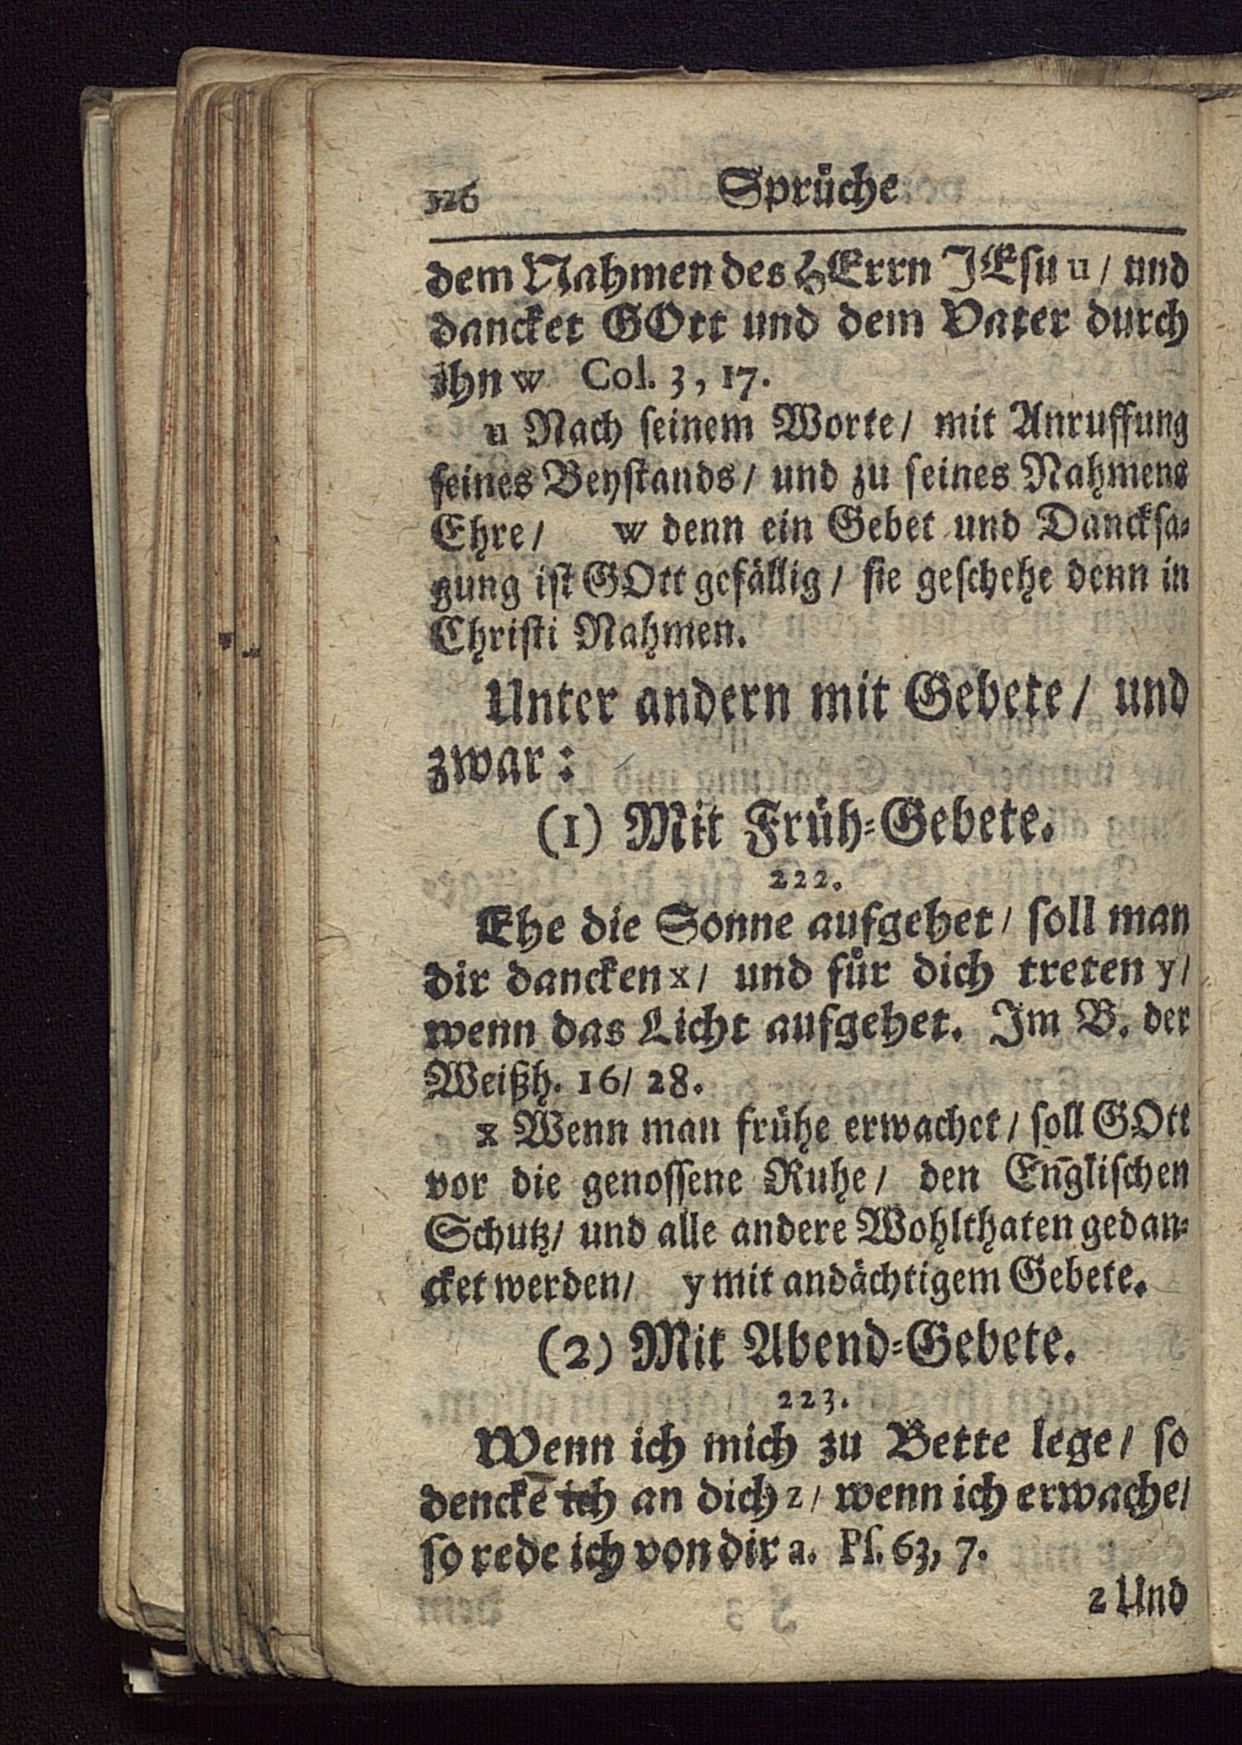 326 Sprüche
dem Nahmen des HErrn JEsu u/ und
dancket GOtt und dem Vater durch
ihn w Col. 3, 17.
u Nach seinem Worte/ mit Anruffung
seines Beystands/ und zu seines Nahmens
Ehre/ w denn ein Gebet und Dancksa-
gung ist GOtt gefällig/ sie geschehe denn in
Christi Nahmen.
Unter andern mit Gebete/ und
zwar:
(1) Mit Früh-Gebete.
222.
Ehe die Sonne aufgehet/ soll man
dir dancken x/ und für dich treten y/
wenn das Licht aufgehet. Im B. der
Weißh. 16/ 28.
x Wenn man frühe erwachet/ soll GOtt
vor die genossene Ruhe/ den En̄glischen
Schutz/ und alle andere Wohlthaten gedan-
cket werden/ y mit andächtigem Gebete.
(2) Mit Abend-Gebete.
223.
Wenn ich mich zu Bette lege/ so
denckē ich an dich z/ wenn ich erwache/
so rede ich von dir a. Ps. 63, 7.
z Und